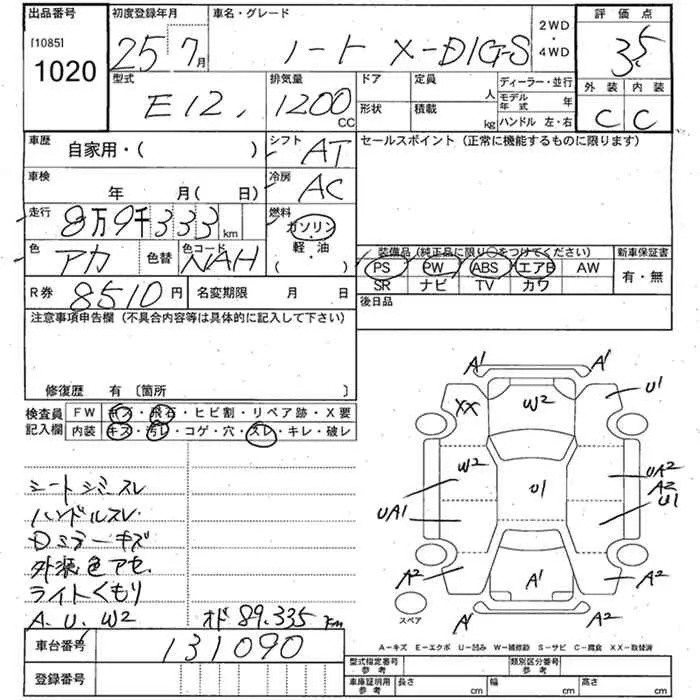 出品番号
[1085]
1020
初度登録年月
25 7月
車名・グレード
ノート X-DIG-S
2WD
・
4WD
評価点
3.5
外装 内装
C C
型式
E12,
排気量
1200
CC
ドア
定員
人
形状
積載
kg
ディーラー・並行
モデル年式
年
ハンドル 左・右
車歴
自家用・( )
シフト
AT
セールスポイント (正常に機能するものに限ります)
車検
年 月( 日)
冷房
AC
走行
8万9千333km
燃料
ガソリン
・
軽・油
( )
色
アカ
色替
色コード
NAH
装備品(純正品に限り○をつけてください)
PS PW ABS エアB AW
SR ナビ TV カワ
新車保証書
有・無
R券
8510円
名変期限 月 日
後日品
注意事項申告欄 (不具合内容等は具体的に記入して下さい)
修復歴 有 〔箇所 〕
検査員記入欄
FW キズ・飛石・ヒビ割・リペア跡・X要
内装 キズ・汚レ・コゲ・穴・スレ・キレ・破レ
シートシミスレ
ハンドルスレ
Dミラーキズ
外装色アセ
ライトくもり
A. U. W2
オド 89.335 Km
A1 A1
XX W2 U1
W2 U1 UA2
A2
UA1 U1
A2 A1 A2
A1 A2
スペア
A-キズ E-エクボ U-凹み W-補修跡 S-サビ C-腐食 XX-取替済
車台番号
131090
登録番号
型式指定番号
参考
類別区分番号
参考
車庫証明用
参考
長さ cm
幅 cm
高さ cm